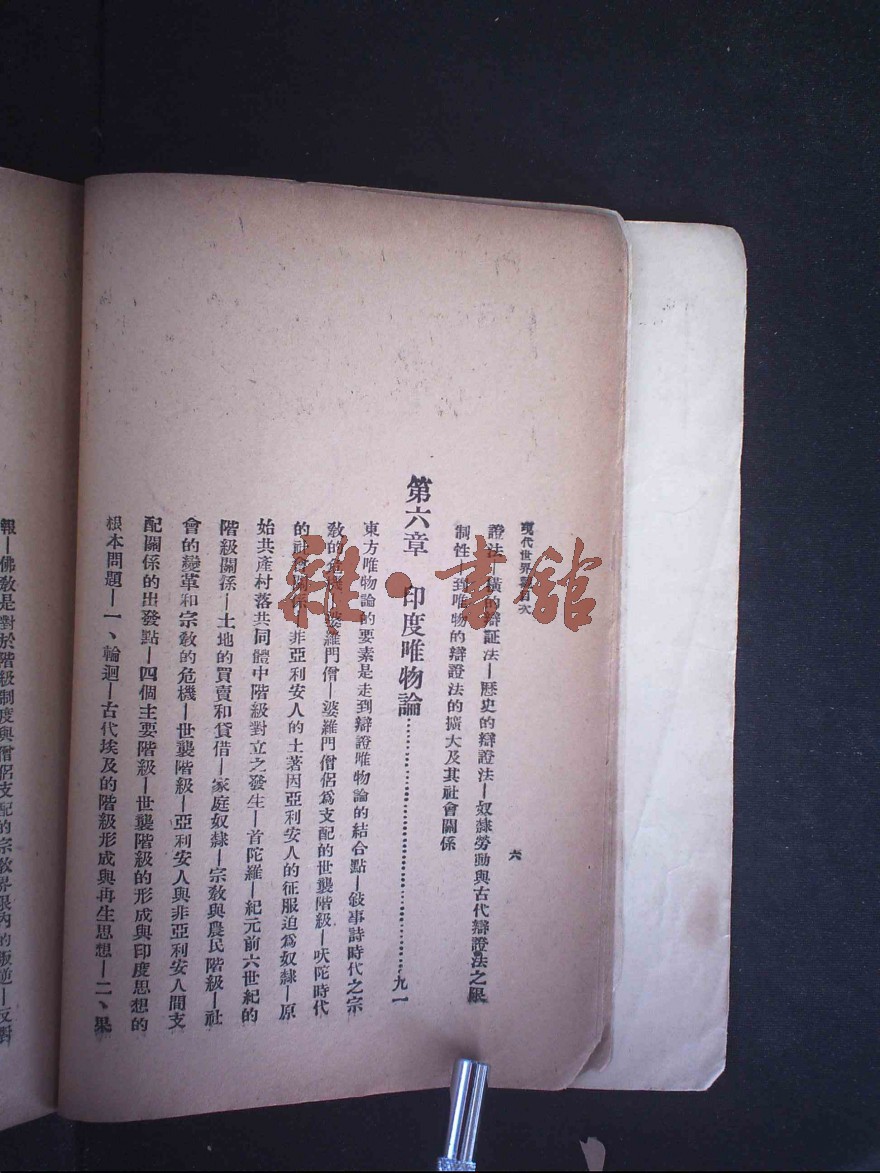 現代世界觀目次
六
證法—橫的辯証法—歷史的辯證法—奴隸勞動與古代辯證法之限
制性—到唯物的辯證法的擴大及其社會關係
第六章 印度唯物論……九一
東方唯物論的要素是走到辯證唯物論的結合點—敍事詩時代之宗
敎的危機—婆羅門僧—婆羅門僧侶爲支配的世襲階級—吠陀時代
的社會關係—非亞利安人的土著因亞利安人的征服迫爲奴隸—原
始共產村落共同體中階級對立之發生—首陀羅—紀元前六世紀的
階級關係—土地的買賣和貸借—家庭奴隸—宗敎與農民階級—社
會的變革和宗敎的危機—世襲階級—亞利安人與非亞利安人間支
配關係的出發點—四個主要階級—世襲階級的形成與印度思想的
根本問題—一、輪迴—古代埃及的階級形成與再生思想—二、果
報—佛敎是對於階級制度與僧侶支配的宗敎界限內的叛逆—反對
雜·書館